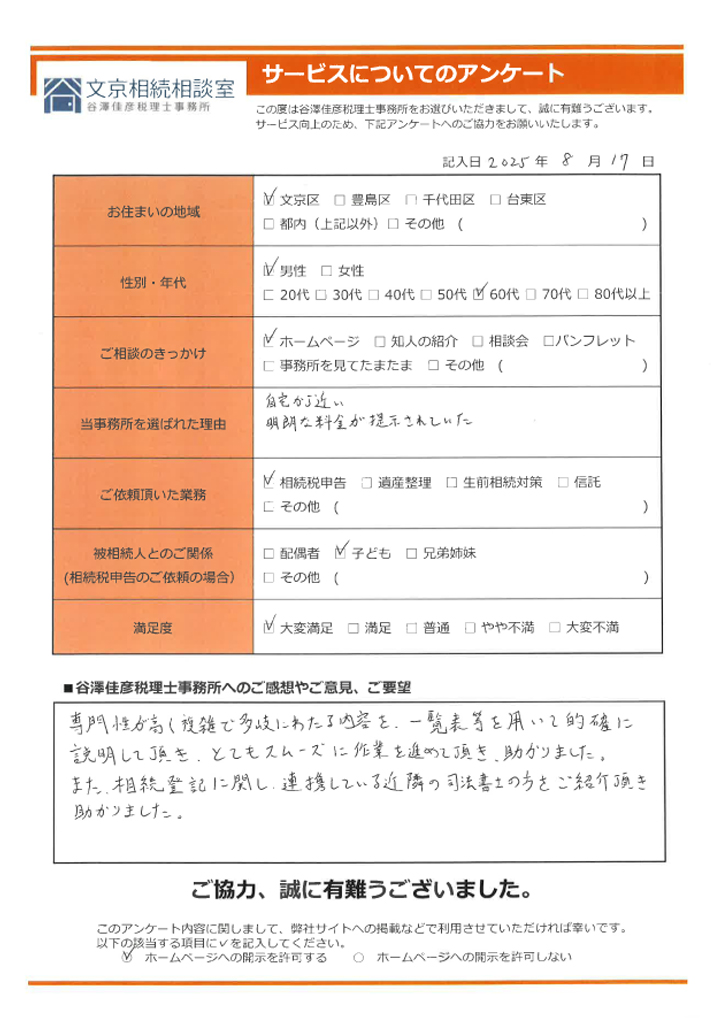 文京相続相談室
谷澤佳彦税理士事務所
サービスについてのアンケート
この度は谷澤佳彦税理士事務所をお選びいただきまして、誠に有難うございます。
サービス向上のため、下記アンケートへのご協力をお願いいたします。
記入日 2025 年 8 月 17 日
お住まいの地域
☑ 文京区 □ 豊島区 □ 千代田区 □ 台東区
□ 都内（上記以外）□ その他 ( )
性別・年代
☑ 男性 □ 女性
□ 20代 □ 30代 □ 40代 □ 50代 ☑ 60代 □ 70代 □ 80代以上
ご相談のきっかけ
☑ ホームページ □ 知人の紹介 □ 相談会 □パンフレット
□ 事務所を見てたまたま □ その他 ( )
当事務所を選ばれた理由
自宅から近い
明朗な料金が提示されていた
ご依頼頂いた業務
☑ 相続税申告 □ 遺産整理 □ 生前相続対策 □ 信託
□ その他 ( )
被相続人とのご関係
(相続税申告のご依頼の場合)
□ 配偶者 ☑ 子ども □ 兄弟姉妹
□ その他 ( )
満足度
☑ 大変満足 □ 満足 □ 普通 □ やや不満 □ 大変不満
■谷澤佳彦税理士事務所へのご感想やご意見、ご要望
専門性が高く複雑で多岐にわたる内容を、一覧表等を用いて的確に
説明して頂き、とてもスムーズに作業を進めて頂き、助かりました。
また、相続登記に関し、連携している近隣の司法書士の方をご紹介頂き
助かりました。
ご協力、誠に有難うございました。
このアンケート内容に関しまして、弊社サイトへの掲載などで利用させていただければ幸いです。
以下の該当する項目に✓を記入してください。
☑ ホームページへの開示を許可する ○ ホームページへの開示を許可しない